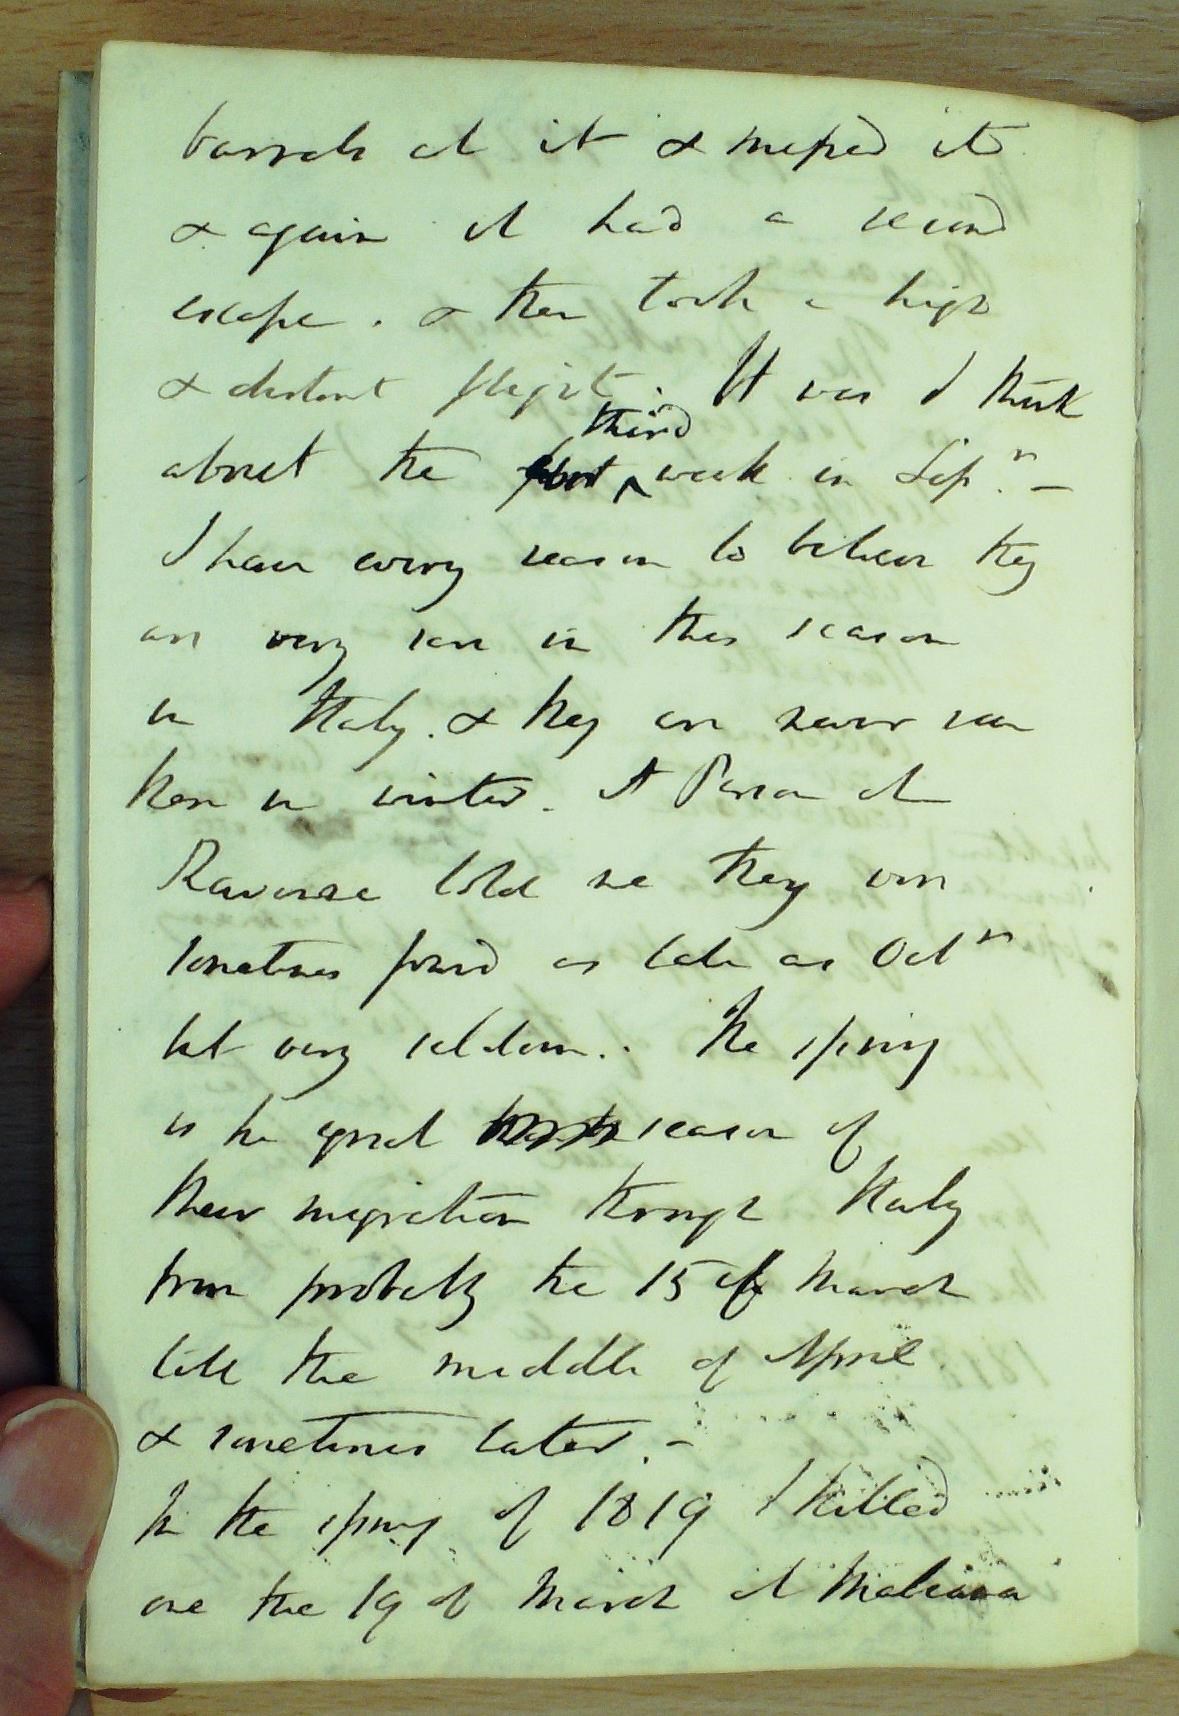 barrels at it & missed it
& again it had a second
escape. & then took a high
& distant flight. It was I think
third
about the first week in Sepr. —
I have every reason to believe they
are very rare in this season
in Italy. & they are never seen
here in winter. A Person at
Ravenna told me they were
sometimes found as late as Octr
but very seldom. The spring
is the great season of
their migration through Italy
from probably the 15 of March
till the middle of April
& sometimes later. —
In the spring of 1819 I killed
one the 19 of March at Maliana